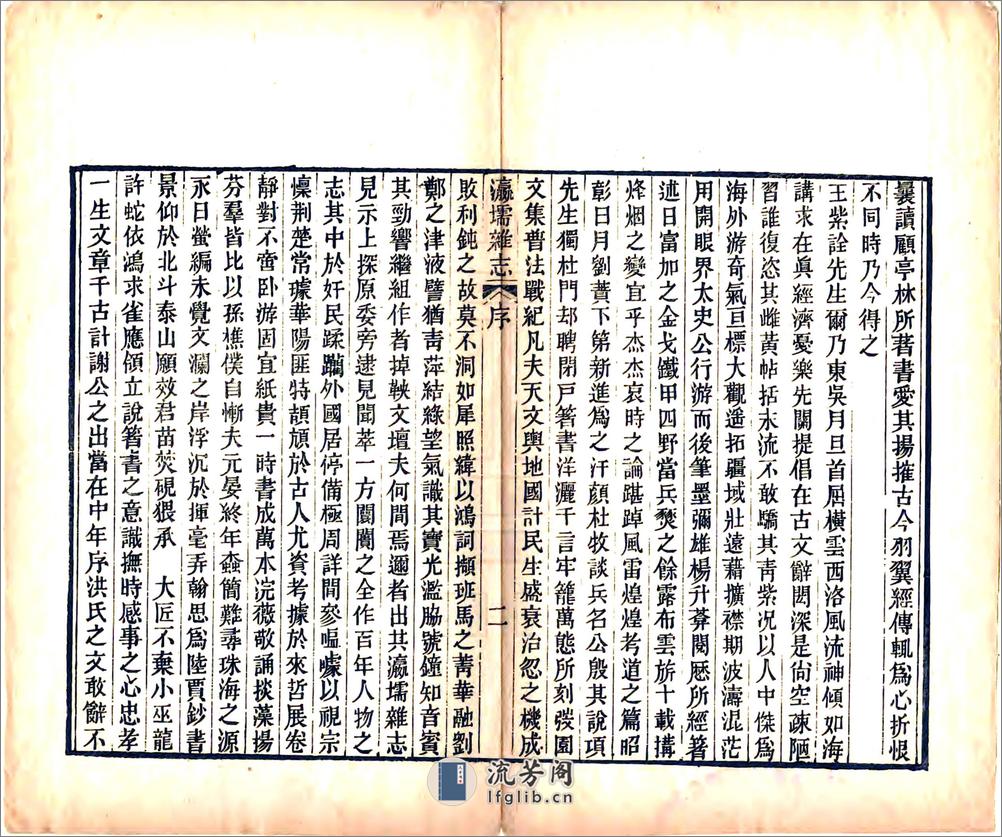 曩讀顧亭林所著書愛其揚搉古今羽翼經傳輒爲心折恨
不同時乃今得之
王紫詮先生爾乃東吳月旦首屈橫雲西洛風流神傾如海
講求在眞經濟憂樂先關提倡在古文辭閎深是尙空疎陋
習誰復恣其雌黃帖括末流不敢驕其靑紫況以人中傑爲
海外游奇氣亘標大觀遥拓疆域壯遠藉擴襟期波濤混茫
用開眼界太史公行游而後筆墨彌雄楊升菴閱歴所經著
述日富加之金戈鐵甲四野當兵燹之餘露布雲旂十載搆
烽烟之變宜乎杰杰哀時之論踸踔風雷煌煌考道之篇昭
彰日月劉蕡下第新進爲之汗顔杜牧談兵名公殷其說項
先生獨杜門却聘閉戸箸書洋灑千言牢籠萬態所刻弢園
文集普法戰紀凡夫天文輿地國計民生盛衰治忽之機成
瀛壖雜志 序 二
敗利鈍之故莫不洞如犀照緯以鴻詞擷班馬之菁華融劉
鄭之津液譬猶靑萍結綠望氣識其寶光濫脇號鐘知音賓
其勁響繼組作者掉鞅文壇夫何間焉邇者出其瀛壖雜志
見示上探原委旁逮見聞萃一方闤闠之全作百年人物之
志其中於奸民蹂躪外國居停備極周詳間參嘔噱以視宗
懍荆楚常璩華陽匪特頡頏於古人尤資考據於來哲展卷
靜對不啻卧游固宜紙貴一時書成萬本浣薇敬誦掞藻揚
芬羣皆比以孫樵僕自慚夫元晏終年蠧簡難尋珠海之源
永日螢編未覺文瀾之岸浮沉於揮毫弄翰思爲陸賈鈔書
景仰於北斗泰山願效君苗焚硯猥承 大匠不棄小巫龍
許蛇依鴻求雀應領立說箸書之意識撫時感事之心忠孝
一生文章千古計謝公之出當在中年序洪氏之文敢辭不
流芳阁
lfglib.cn